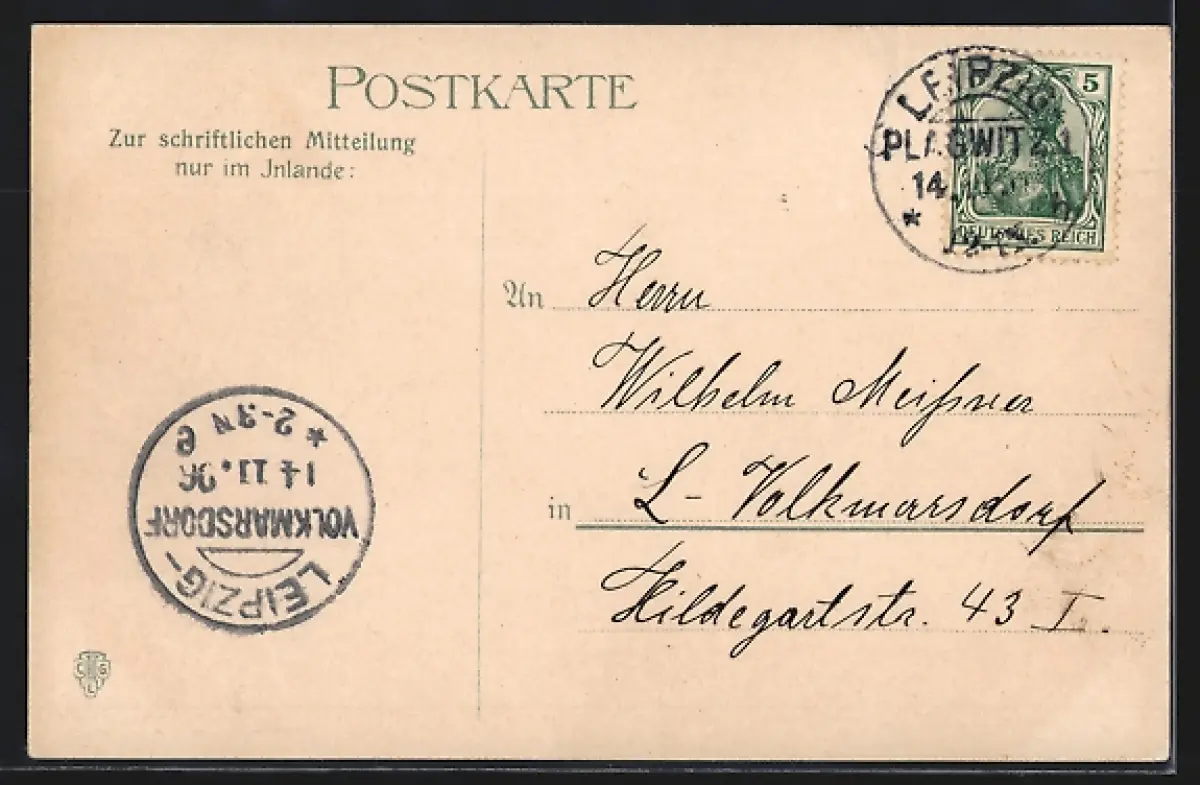 POSTKARTE
Zur schriftlichen Mitteilung
nur im Jnlande:
LEIPZIG
PLAGWITZ 1
14.
*
5
DEUTSCHES REICH
An Herrn
Wilhelm Meißner
in L-Volkmarsdorf
Hildegartstr. 43 I.
LEIPZIG-
VOLKMARSDORF
14 11.06
* 2-3N e
C G
L